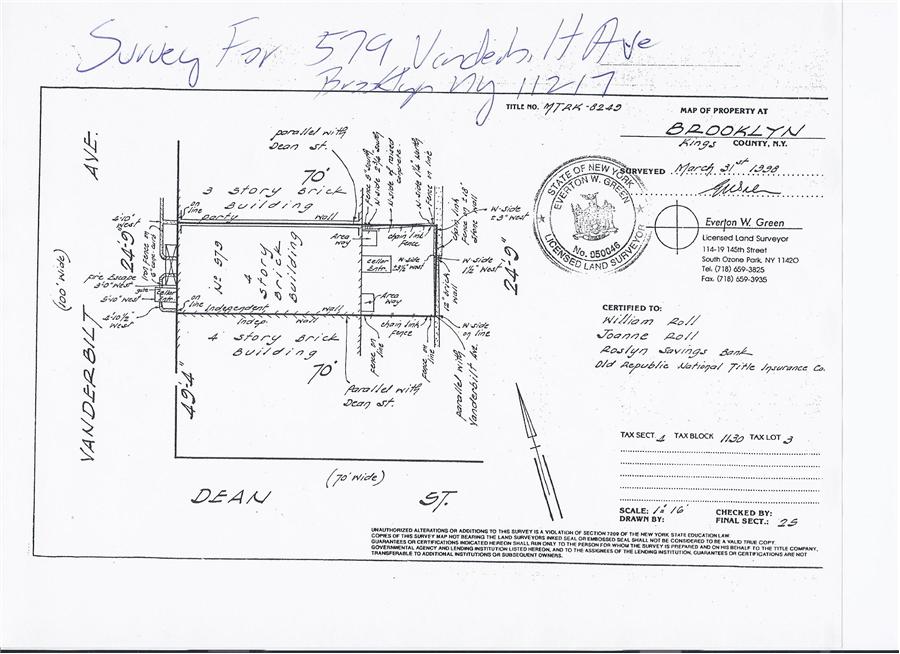 Survey For 579 Vanderbilt Ave
Brooklyn NY 11217
TITLE NO. MTRK-8249
MAP OF PROPERTY AT
BROOKLYN
Kings COUNTY, N.Y.
SURVEYED March 31st 1998
STATE OF NEW YORK
EVERTON W. GREEN
No. 050046
LICENSED LAND SURVEYOR
Everton W. Green
Licensed Land Surveyor
114-19 145th Street
South Ozone Park, NY 11420
Tel. (718) 659-3825
Fax. (718) 659-3935
CERTIFIED TO:
William Roll
Joanne Roll
Roslyn Savings Bank
Old Republic National Title Insurance Co.
TAX SECT. 4 TAX BLOCK 1130 TAX LOT 3
SCALE: 1"=16'
DRAWN BY:
CHECKED BY:
FINAL SECT.: 25
VANDERBILT AVE.
(100' wide)
parallel with
Dean St.
70'
3 Story Brick
Building
on line
party wall
fence on line
W-side
±3" West
chain link
fence
Area
way
Cellar
Entr.
W-side
1½" West
24'-9"
24'-9"
4 Story
Brick
Building
Area
way
12" Brick
wall
Fire Escape
3'-0" West
5'-10" West
4'-10½"
West
on line
Independent wall
Indep. wall
chain link
fence
W-side
on line
4 Story Brick
Building
fence on line
fence on line
70'
49'-4"
parallel with
Dean St.
parallel with
Vanderbilt Ave.
(70' wide)
DEAN ST.
UNAUTHORIZED ALTERATIONS OR ADDITIONS TO THIS SURVEY IS A VIOLATION OF SECTION 7209 OF THE NEW YORK STATE EDUCATION LAW.
COPIES OF THIS SURVEY MAP NOT BEARING THE LAND SURVEYORS INKED SEAL OR EMBOSSED SEAL SHALL NOT BE CONSIDERED TO BE A VALID TRUE COPY.
GUARANTEES OR CERTIFICATIONS INDICATED HEREON SHALL RUN ONLY TO THE PERSON FOR WHOM THE SURVEY IS PREPARED AND ON HIS BEHALF TO THE TITLE COMPANY,
GOVERNMENTAL AGENCY AND LENDING INSTITUTION LISTED HEREON, AND TO THE ASSIGNEES OF THE LENDING INSTITUTION, GUARANTEES OR CERTIFICATIONS ARE NOT
TRANSFERABLE TO ADDITIONAL INSTITUTIONS OR SUBSEQUENT OWNERS.